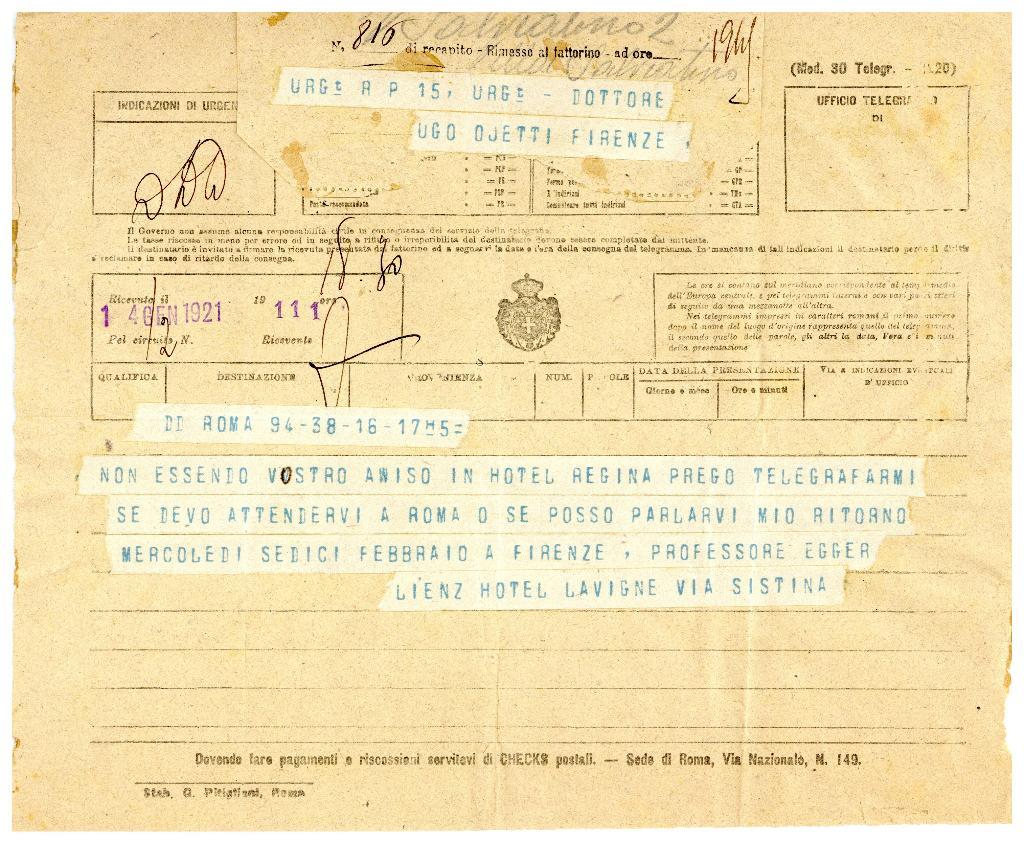 Salviatino 2
N. 816 di recapito - Rimesso al fattorino - ad ore
Salviatino
(Mod. 30 Telegr. - 1920)
URGt R P 15, URGt - DOTTORE
UGO OJETTI FIRENZE ,
INDICAZIONI DI URGEN
UFFICIO TELEGR
DI
Il Governo non assume alcuna responsabilità civile in conseguenza del servizio della telegrafia.
Le tasse riscosse in meno per errore od in seguito a rifiuto o irreperibilità del destinatario devono essere completate dal mittente.
Il destinatario è invitato a firmare la ricevuta presentata dal fattorino ed a segnarvi la data e l'ora della consegna del telegramma. In mancanza di tali indicazioni il destinatario perde il diritto
reclamare in caso di ritardo della consegna.
18.30
Ricevuto il 19 ore
1 4 GEN 1921 111
Pel circuito N. Ricevente
Le ore si contano sul meridiano corrispondente al tempo medio
dell'Europa centrale, e pei telegrammi interni e con vari paesi esteri
di seguito da una mezzanotte all'altra.
Nei telegrammi impressi in caratteri romani il primo numero
dopo il nome del luogo d'origine rappresenta quello del telegramma,
il secondo quello delle parole, gli altri la data, l'ora e i minuti
della presentazione
QUALIFICA DESTINAZIONE PROVENIENZA NUM. PAROLE DATA DELLA PRESENTAZIONE VIA E INDICAZIONI EVENTUALI
Giorno e mese Ore e minuti D'UFFICIO
DD ROMA 94-38-16-17H5=
NON ESSENDO VOSTRO AWISO IN HOTEL REGINA PREGO TELEGRAFARMI
SE DEVO ATTENDERVI A ROMA O SE POSSO PARLARVI MIO RITORNO
MERCOLEDI SEDICI FEBBRAIO A FIRENZE , PROFESSORE EGGER
LIENZ HOTEL LAVIGNE VIA SISTINA
Dovendo fare pagamenti e riscossioni servitevi di CHECKS postali. — Sede di Roma, Via Nazionale, N. 149.
Stab. G. Pitigliani, Roma